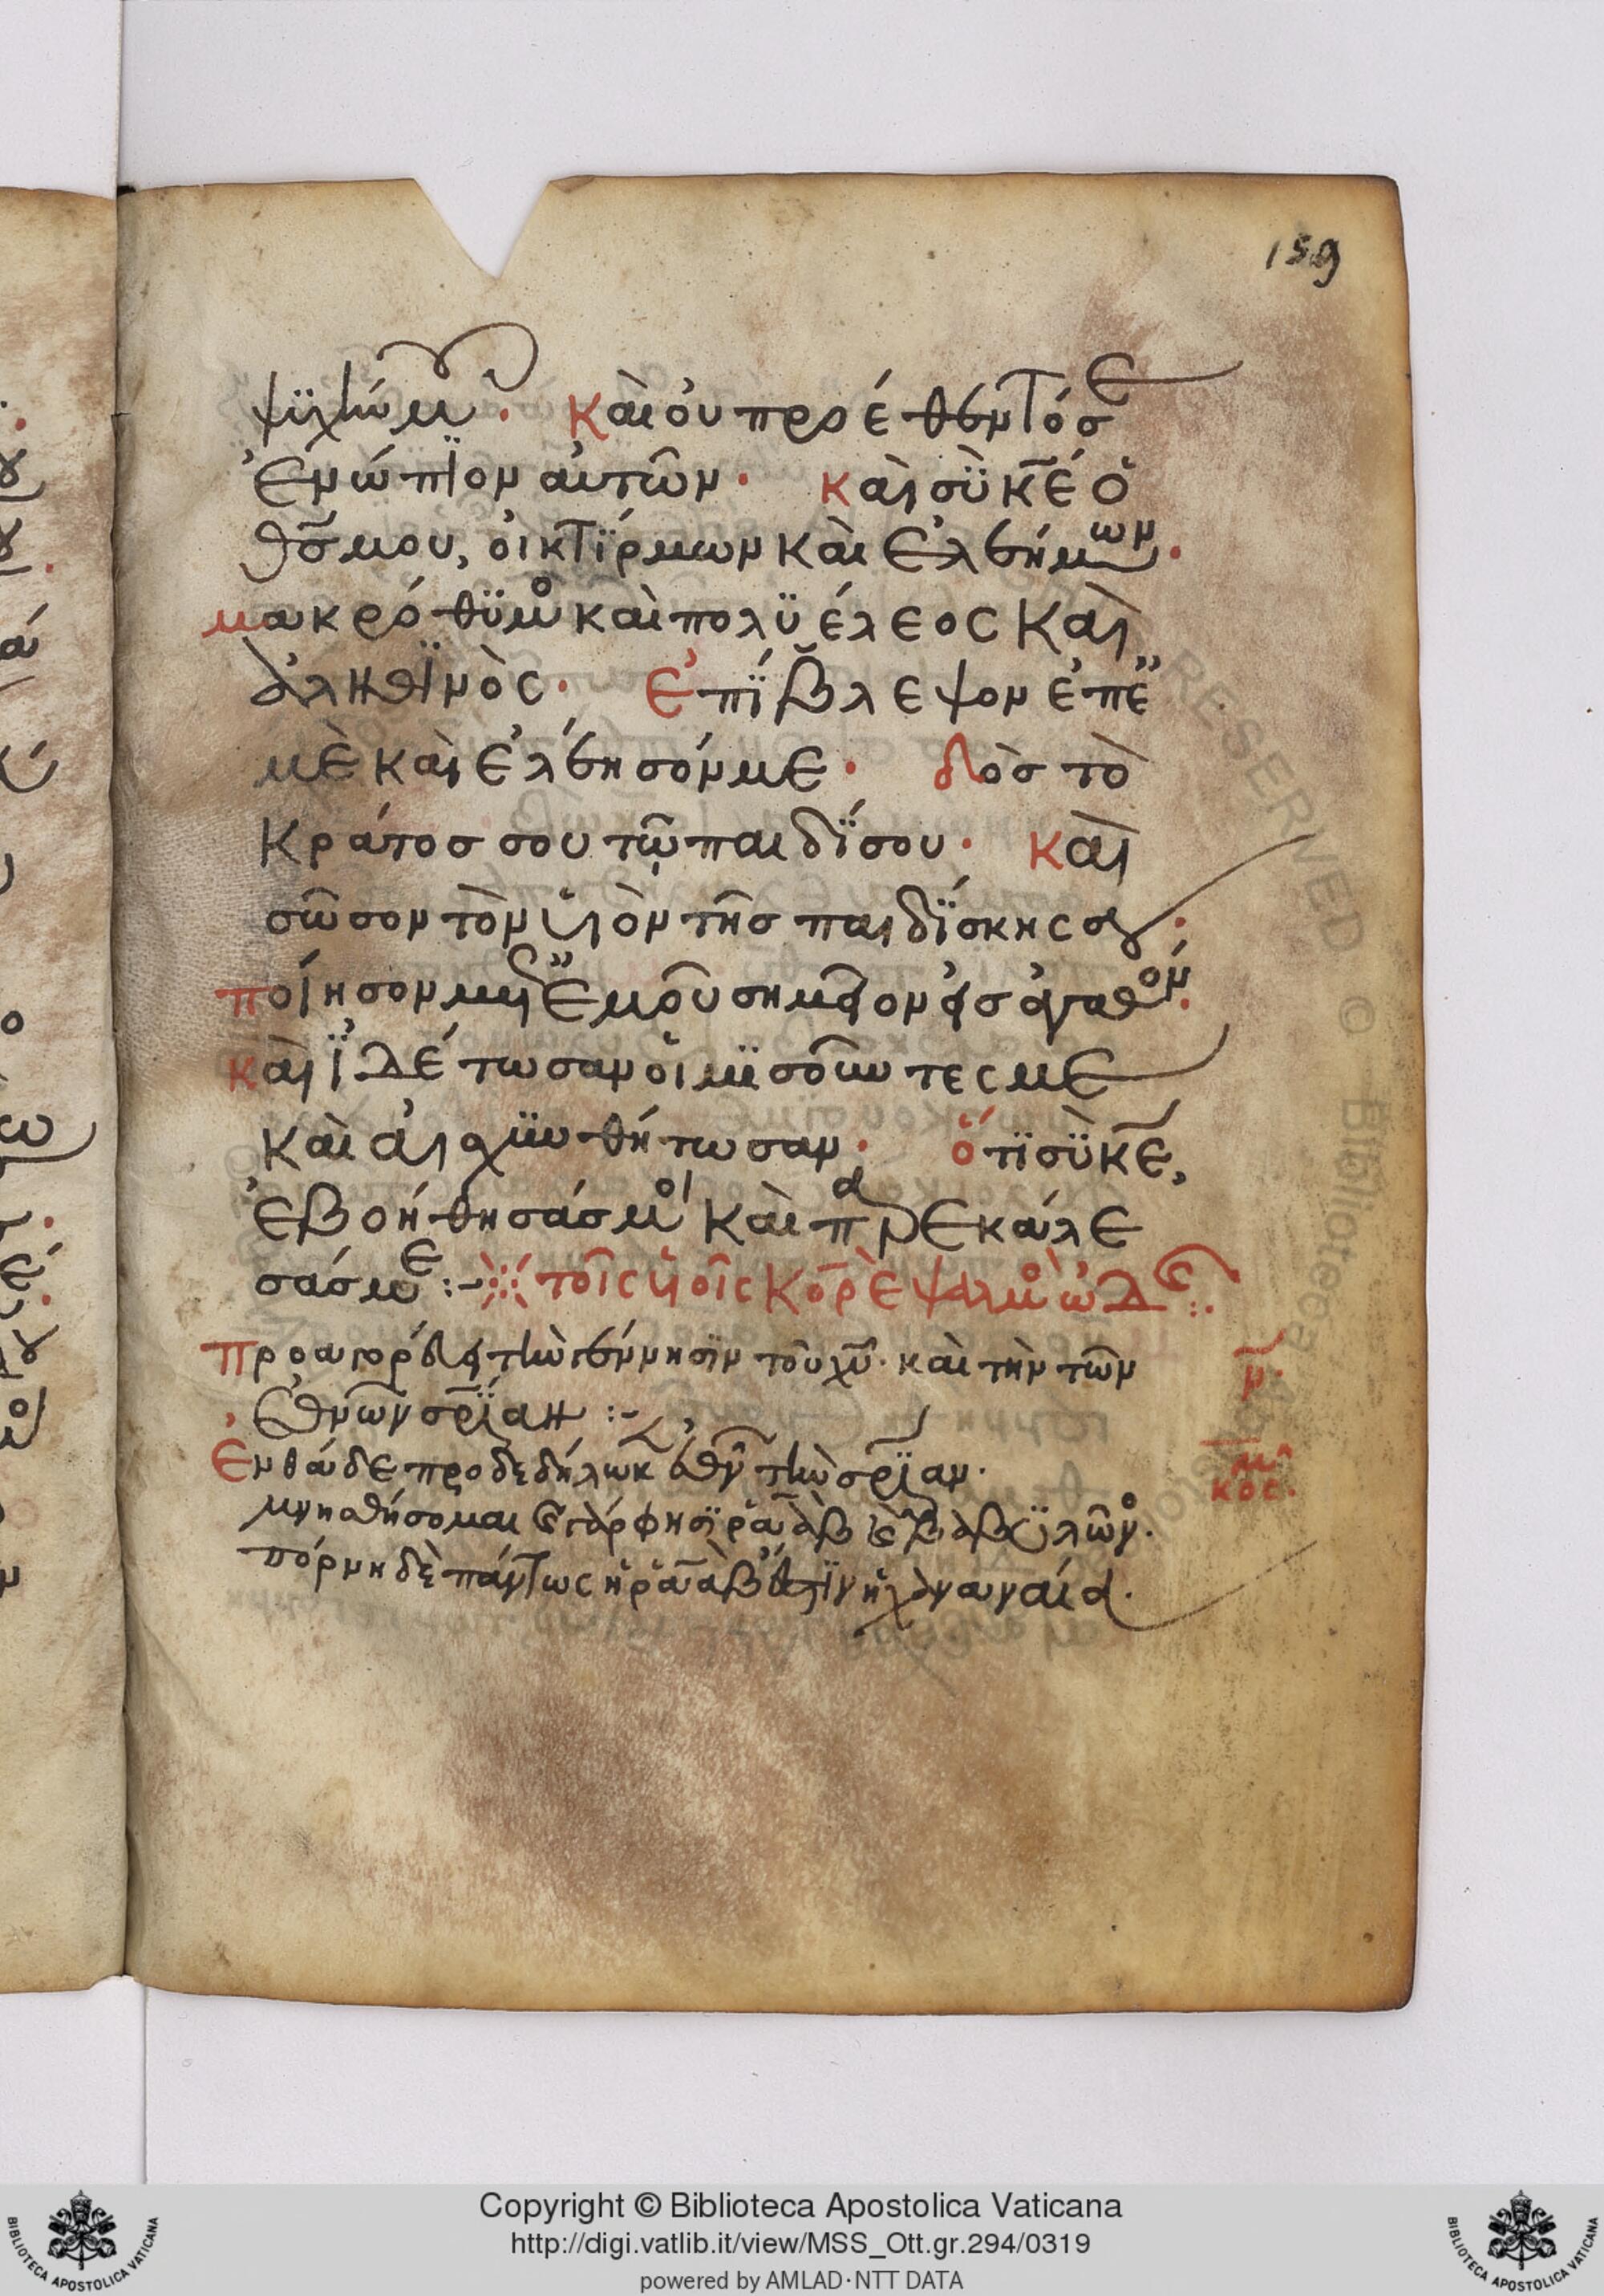 159
ψϋχήν μου· Καὶ οὐ προέθεντό σε
Ἐνώπϊον αὐτῶν· καὶ σὺ κ̅ε̅ ὁ
θ̅ς̅ μου, οἰκτίρμων καὶ ἐλεήμων·
μακρόθϋμος καὶ πολϋέλεος καὶ
ἀληθϊνὸς· Ἐπίβλεψον ἐπ᾽ ἐ
μὲ καὶ ἐλέησόν με· δὸς τὸ
κράτος σου τῷ παιδί σου· καὶ
σῶσον τὸν ὑιὸν τῆς παιδίσκης σου·
ποίησον μετ᾽ ἐμοῦ σημεῖον εἰς ἀγαθόν·
καὶ ἰδέτωσαν οἱ μϊσοῦντές με
καὶ αἰσχυνθήτωσαν· ὅτϊ σὺ κ̅ε̅,
ἐβοήθησάς μοι καὶ παρεκάλε
σάς με :- τοῖς ὑιοῖς Κορὲ ψαλμὸς ὠδῆς :.
Προαγορεύει τὴν γέννησϊν τοῦ χ̅υ̅· καὶ τὴν τῶν μ̅·
Ἐθνῶν σ̅ρ̅ίαν :-
Ἐνθάδε προδεδήλωκεν ἐθνῶν τὴν σ̅ρ̅ίαν·
μνησθήσομαι γὰρ φησῒ ῥαὰβ καὶ βαβϋλῶνος·
πόρνη δὲ πάντως ἡ ῥαὰβ ἐστὶν ἡ χαναναία·
κος·
RESERVED © Biblioteca
BIBLIOTECA APOSTOLICA VATICANA
Copyright © Biblioteca Apostolica Vaticana
http://digi.vatlib.it/view/MSS_Ott.gr.294/0319
powered by AMLAD·NTT DATA
BIBLIOTECA APOSTOLICA VATICANA